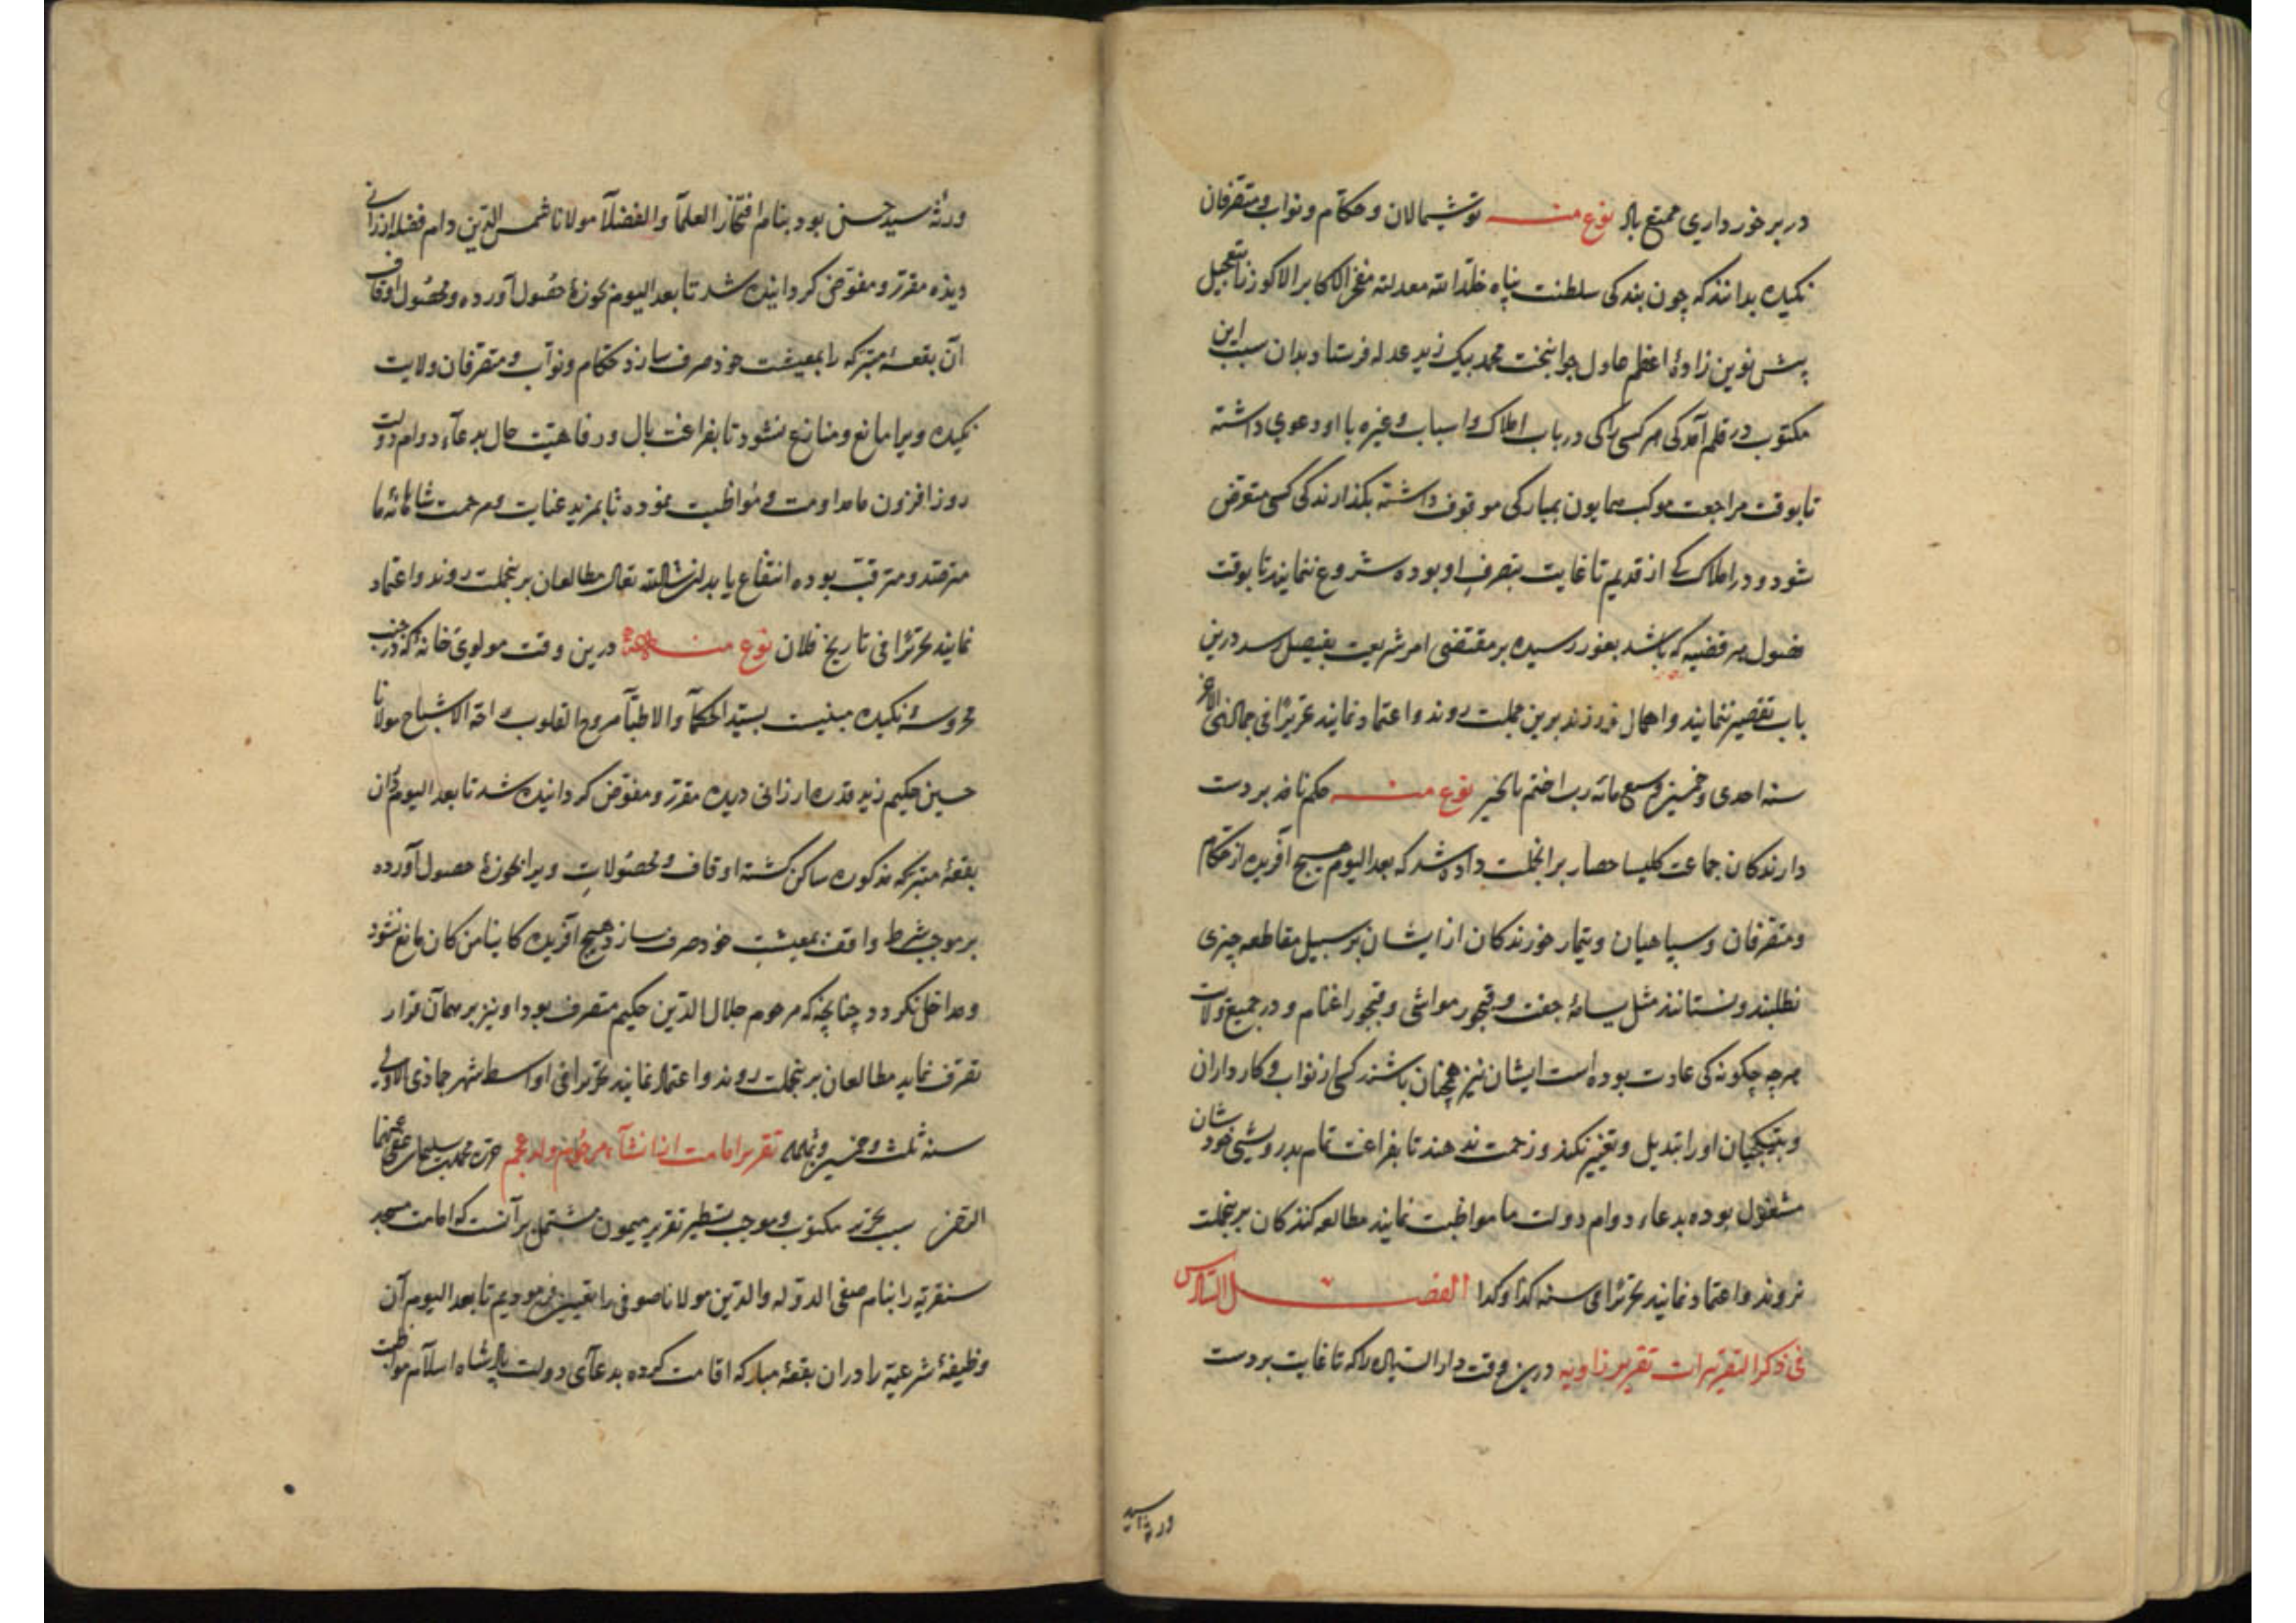 در برخورداری ممتع باد نوع منه توشمالان و حکام و نواب و متصرفان
نکیده بدانند که چون بندکی سلطنت پناه خلد الله معدلته مفخر الاکابر الاکوز را بتعجیل
پیش نوین زادهٔ اعظم عادل جوانبخت محمد بیک زید عدله فرستاد بدان سبب این
مکتوب در قلم آمد کی هر کسی را کی در باب املاک و اسباب و غیره با او دعوی داشته
تا بوقت مراجعت موکب همایون بمبارکی موقوف داشته بکذارند کی کسی متعرض
شود و در املاک کی از قدیم تا غایت بتصرف او بوده شروع ننمایند تا بوقت
فضول هر قضیه که باشد بغور رسیده بر مقتضی امر شریعت بفیصل رسد درین
باب تقصیر ننمایند و اهمال نورزند برین جملت روند و اعتماد نمایند تحریرا فی جمالذی الاخر
سنه احدی و خمسین و سبع مائه رب اختم بالخیر نوع منه حکم نافذ بر دست
دارندکان جماعت کلیسا حصار بر آنجملت داده شد که بعد الیوم هیچ آفریده از حکام
و متصرفان و سپاهیان و تیمار خورندکان از ایشان بر سبیل مقاطعه چیزی
نطلبند و نستانند مثل یسامهٔ جفت و قبجور مواشی و قبجور اغنام و در جمیع ولایت
هر چه چکونه کی عادت بوده است ایشان نیز همچنان باشند کسی از نواب و کار داران
و بتکچیان او را تبدیل و تغییر نکند و زحمت ندهند تا بفراغت تمام بدرویشی خودشان
مشغول بوده بدعاء دوام دولت ما مواظبت نمایند مطالعه کنندکان برینجملت
بروند و اعتماد نمایند تحریرا فی سنه کذا و کذا الفصل السادس
فی ذکر التقریرات تقریر زاویه درین وقت دار السیاده را که تا غایت بر دست
ورثه سید
ورثه سید حسن بود بنام افتخار العلمآ و الفضلآ مولانا شمس الدین دام فضله ارزانی
دیده مقرر و مفوض کردانیده شد تا بعد الیوم بحوزهٔ حصول آورده و محصول اوقاف
آن بقعهٔ متبرکه را بمعیشت خود صرف سازد حکام و نواب و متصرفان ولایت
نکیده ویرا مانع و منازع نشود تا بفراغت بال و رفاهیت حال بدعآء دوام دولت
روز افزون ما مداومت و مواظبت نموده تا بمزید عنایت و مرحمت شاهانهٔ ما
مترصد و مترقب بوده انتفاع یابد ان شاء الله تعالی مطالعان برینجملت روند و اعتماد
نمایند تحریرا فی تاریخ فلان نوع منه درین وقت مولوی خانه که در جنب
محروسهٔ نکیده مبنیست بسید الحکمآ و الاطبآ مروح القلوب راحة الاشباح مولانا
حسین حکیم زید قدره ارزانی دیده مقرر و مفوض کردانیده شد تا بعد الیوم در آن
بقعهٔ متبرکه مذکوره ساکن کشته اوقاف و محصولات ویرا بحوزهٔ حصول آورده
بر موجب شرط واقف بمعیشت خود صرف سازد هیچ آفریده کاینا من کان مانع نشود
و مداخل نکردد چنانچه که مرحوم جلال الدین حکیم متصرف بود او نیز بر همان قرار
تصرف نماید مطالعان برینجملت روند و اعتماد نمایند تحریرا فی اواسط شهر جمادی الاولی
سنه ثلث و خمسین و سبعمایه تقریر امامت از انشآء مرحوم ولد عجم حرره محمد بن سلیمان عفی عنهما
الغرض سبب تحریر مکتوب و موجب تسطیر تقریر میمون مشتمل بر آنست که امامت مسجد
سنقریه را بنام صفی الدوله و الدین مولانا صوفی را تعیین فرمودیم تا بعد الیوم آن
وظیفهٔ شرعیه را در ان بقعهٔ مبارکه اقامت کرده بدعآی دولت پادشاه اسلام مواظبت